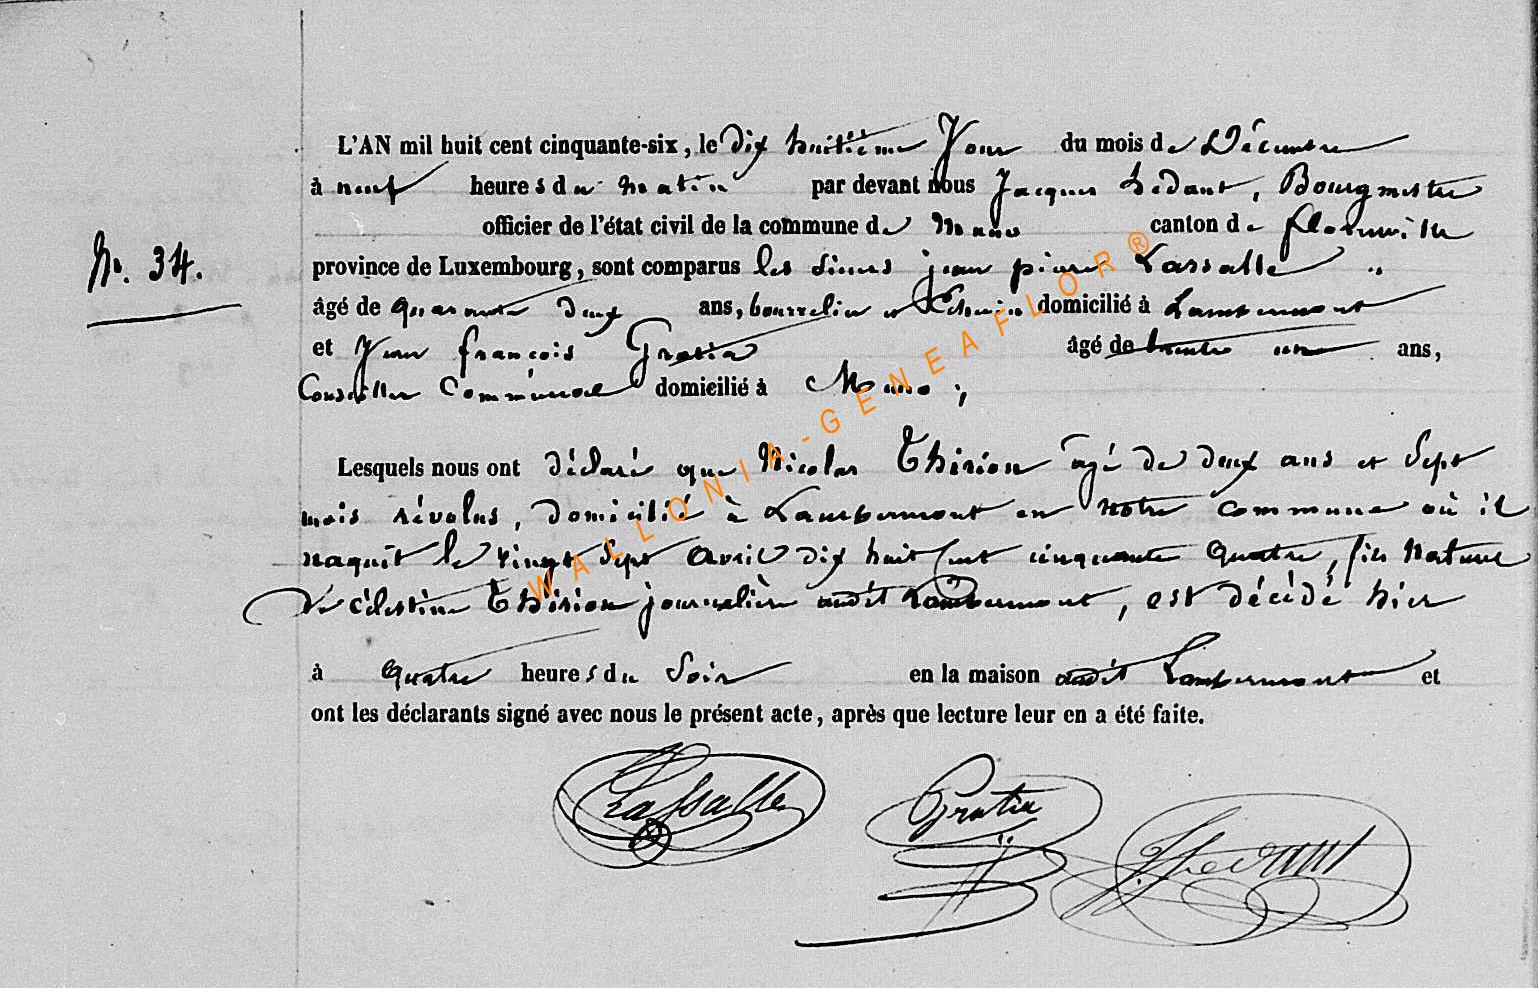 L'AN mil huit cent cinquante-six, le dix huitième Jour du mois de Décembre
à neuf heures du matin par devant nous Jacques hédant, Bourgmestre
officier de l'état civil de la commune de Muno canton de florenville
N°. 34.
province de Luxembourg, sont comparus les Sieurs jean pierre Lassalle
âgé de quarante deux ans, bourrelier et Echevin domicilié à Lambermont
et Jean françois Gratia âgé de trente un ans,
Conseiller Communal domicilié à Muno ;
Lesquels nous ont déclaré que Nicolas Thirion âgé de deux ans et Sept
mois révolus, domicilié à Lambermont en notre commune où il
naquit le vingt Sept avril dix huit Cent cinquante quatre, fils Naturel
de Célestine Thirion journalière audit Lambermont, est décédé hier
à quatre heures du Soir en la maison audit Lambermont et
ont les déclarants signé avec nous le présent acte, après que lecture leur en a été faite.
Lassalle Gratia
WALLONIA-GENEAFLOR®